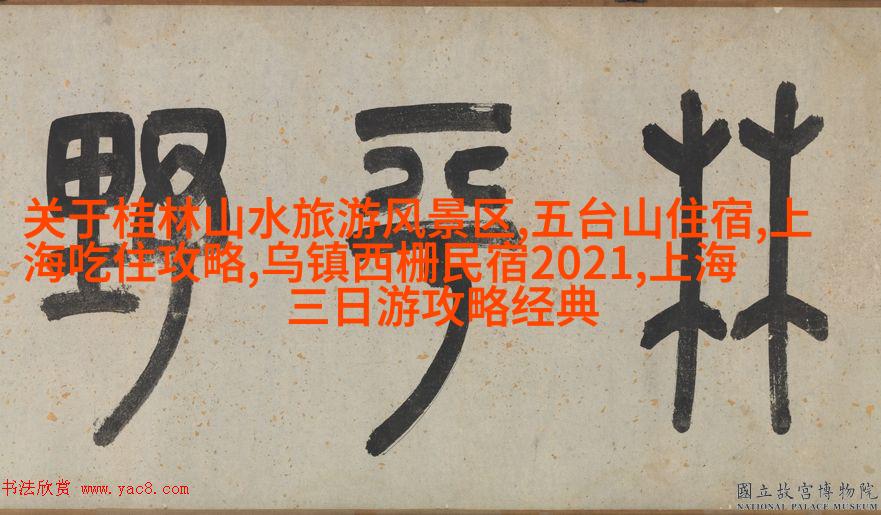 林平野
关于桂林山水旅游风景区,五台山住宿,上
海吃住攻略,乌镇西栅民宿2021,上海
三日游攻略经典
书法欣赏 www.yac8.com
國立故宮博物院
NATIONAL PALACE MUSEUM